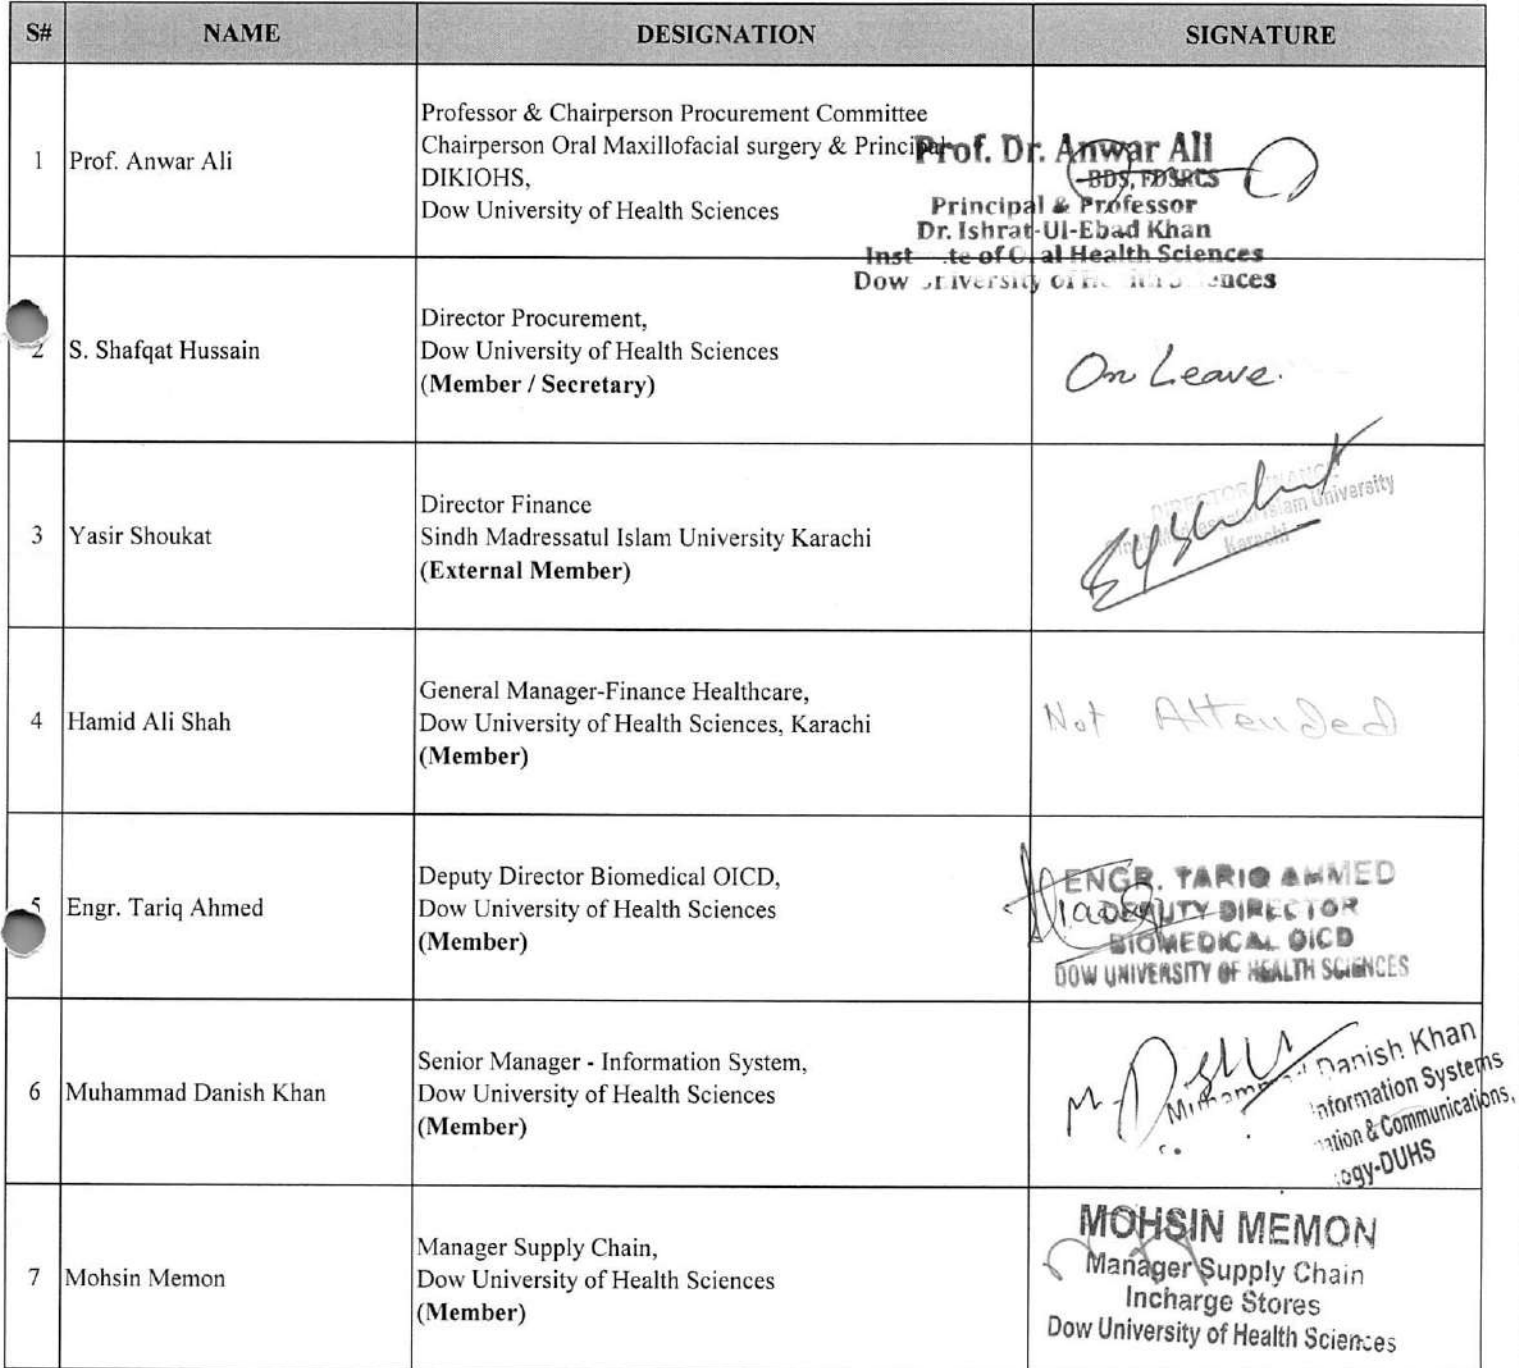 S# NAME DESIGNATION SIGNATURE
1 Prof. Anwar Ali
Professor & Chairperson Procurement Committee
Chairperson Oral Maxillofacial surgery & Principal
DIKIOHS,
Dow University of Health Sciences
Prof. Dr. Anwar Ali
BDS, FDSRCS
Principal & Professor
Dr. Ishrat-Ul-Ebad Khan
of Oral Health Sciences
Dow University of Health Sciences
2 S. Shafqat Hussain
Director Procurement,
Dow University of Health Sciences
(Member / Secretary)
On Leave.
3 Yasir Shoukat
Director Finance
Sindh Madressatul Islam University Karachi
(External Member)
DIRECTOR FINANCE
Sindh Madressatul Islam University
Karachi
4 Hamid Ali Shah
General Manager-Finance Healthcare,
Dow University of Health Sciences, Karachi
(Member)
Not Attended
5 Engr. Tariq Ahmed
Deputy Director Biomedical OICD,
Dow University of Health Sciences
(Member)
ENGR. TARIQ AHMED
DEPUTY DIRECTOR
BIOMEDICAL OICD
DOW UNIVERSITY OF HEALTH SCIENCES
6 Muhammad Danish Khan
Senior Manager - Information System,
Dow University of Health Sciences
(Member)
Muhammad Danish Khan
Information Systems
& Communications,
-DUHS
7 Mohsin Memon
Manager Supply Chain,
Dow University of Health Sciences
(Member)
MOHSIN MEMON
Manager Supply Chain
Incharge Stores
Dow University of Health Sciences